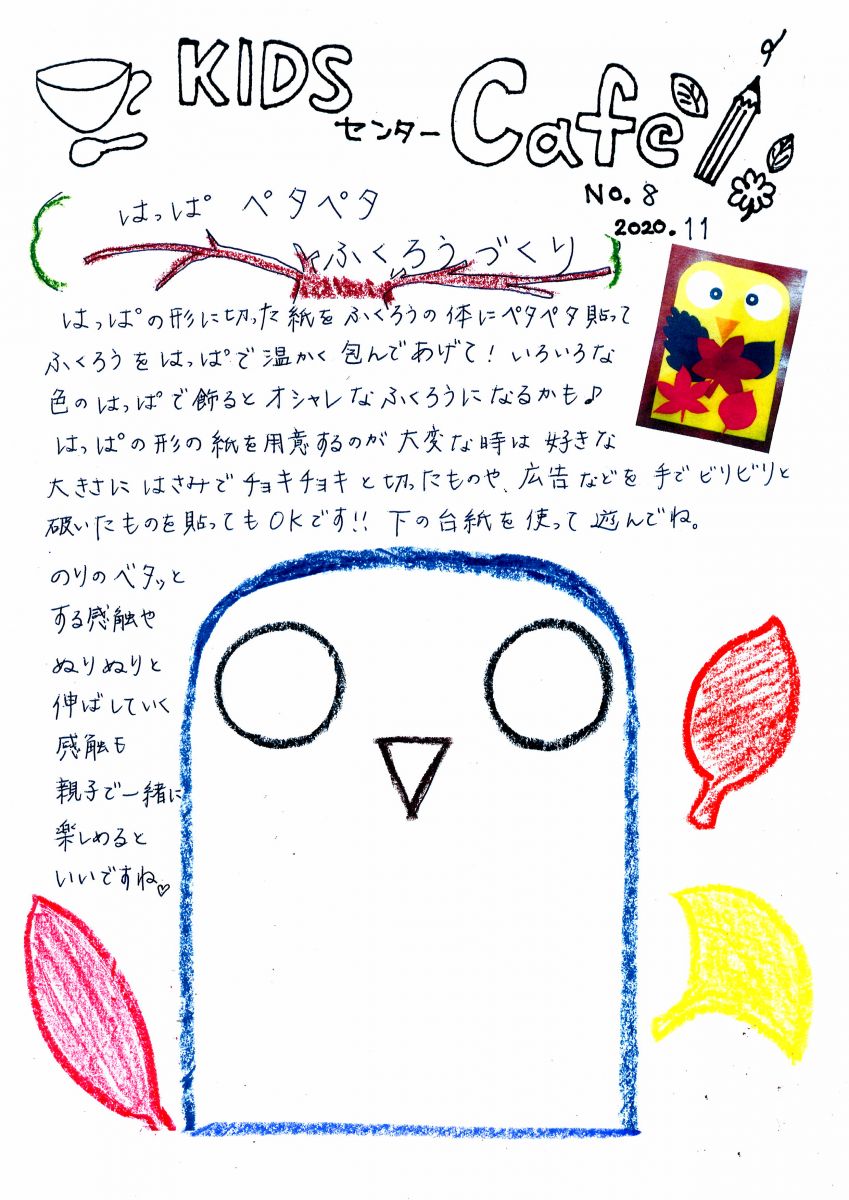 KIDS
センター Cafe
No.8
2020.11
はっぱ ペタペタ
ふくろうづくり
はっぱの形に切った紙をふくろうの体にペタペタ貼って
ふくろうをはっぱで温かく包んであげて!いろいろな
色のはっぱで飾るとオシャレなふくろうになるかも♪
はっぱの形の紙を用意するのが大変な時は好きな
大きさにはさみでチョキチョキと切ったものや、広告などを手でビリビリと
破いたものを貼ってもOKです!!下の台紙を使って遊んでね。
のりのベタッと
する感触や
ぬりぬりと
伸ばしていく
感触も
親子で一緒に
楽しめると
いいですね♡